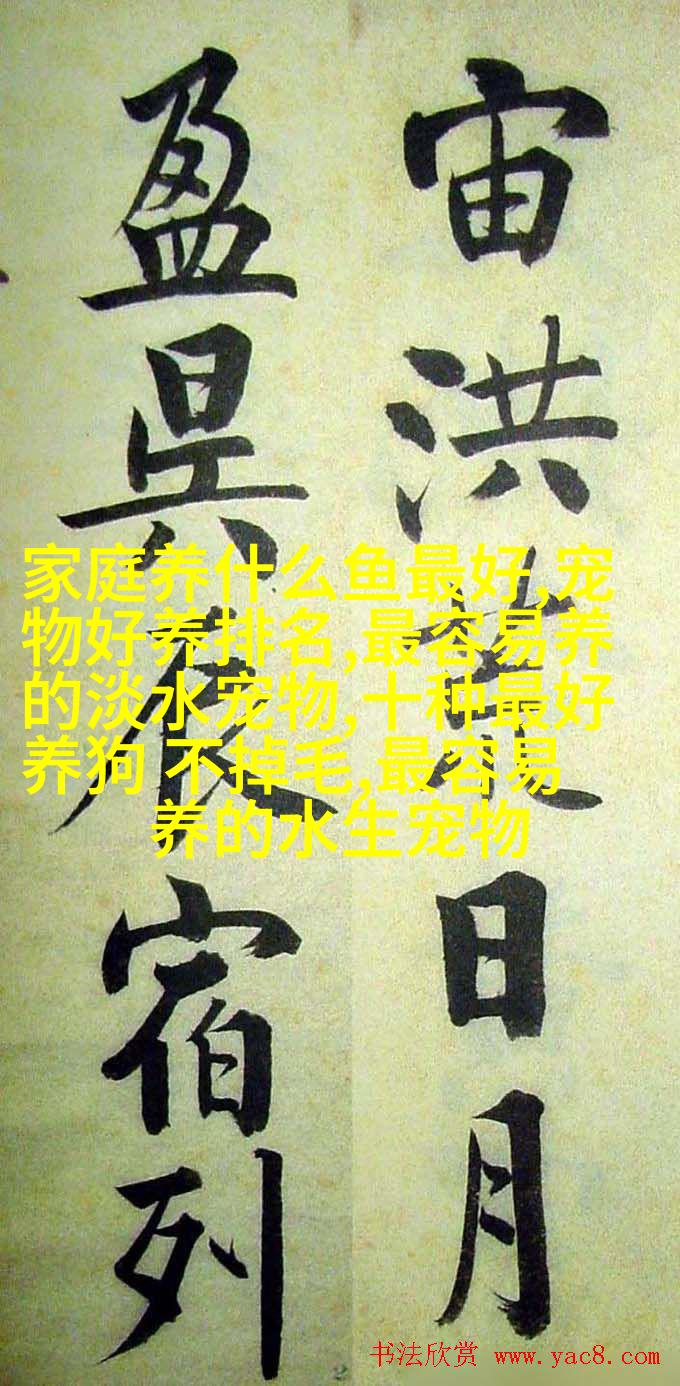 宙洪荒日月
盈昃辰宿列
家庭养什么鱼最好,宠
物好养排名,最容易养
的淡水宠物,十种最好
养狗 不掉毛,最容易
养的水生宠物
书法欣赏 www.yac8.com